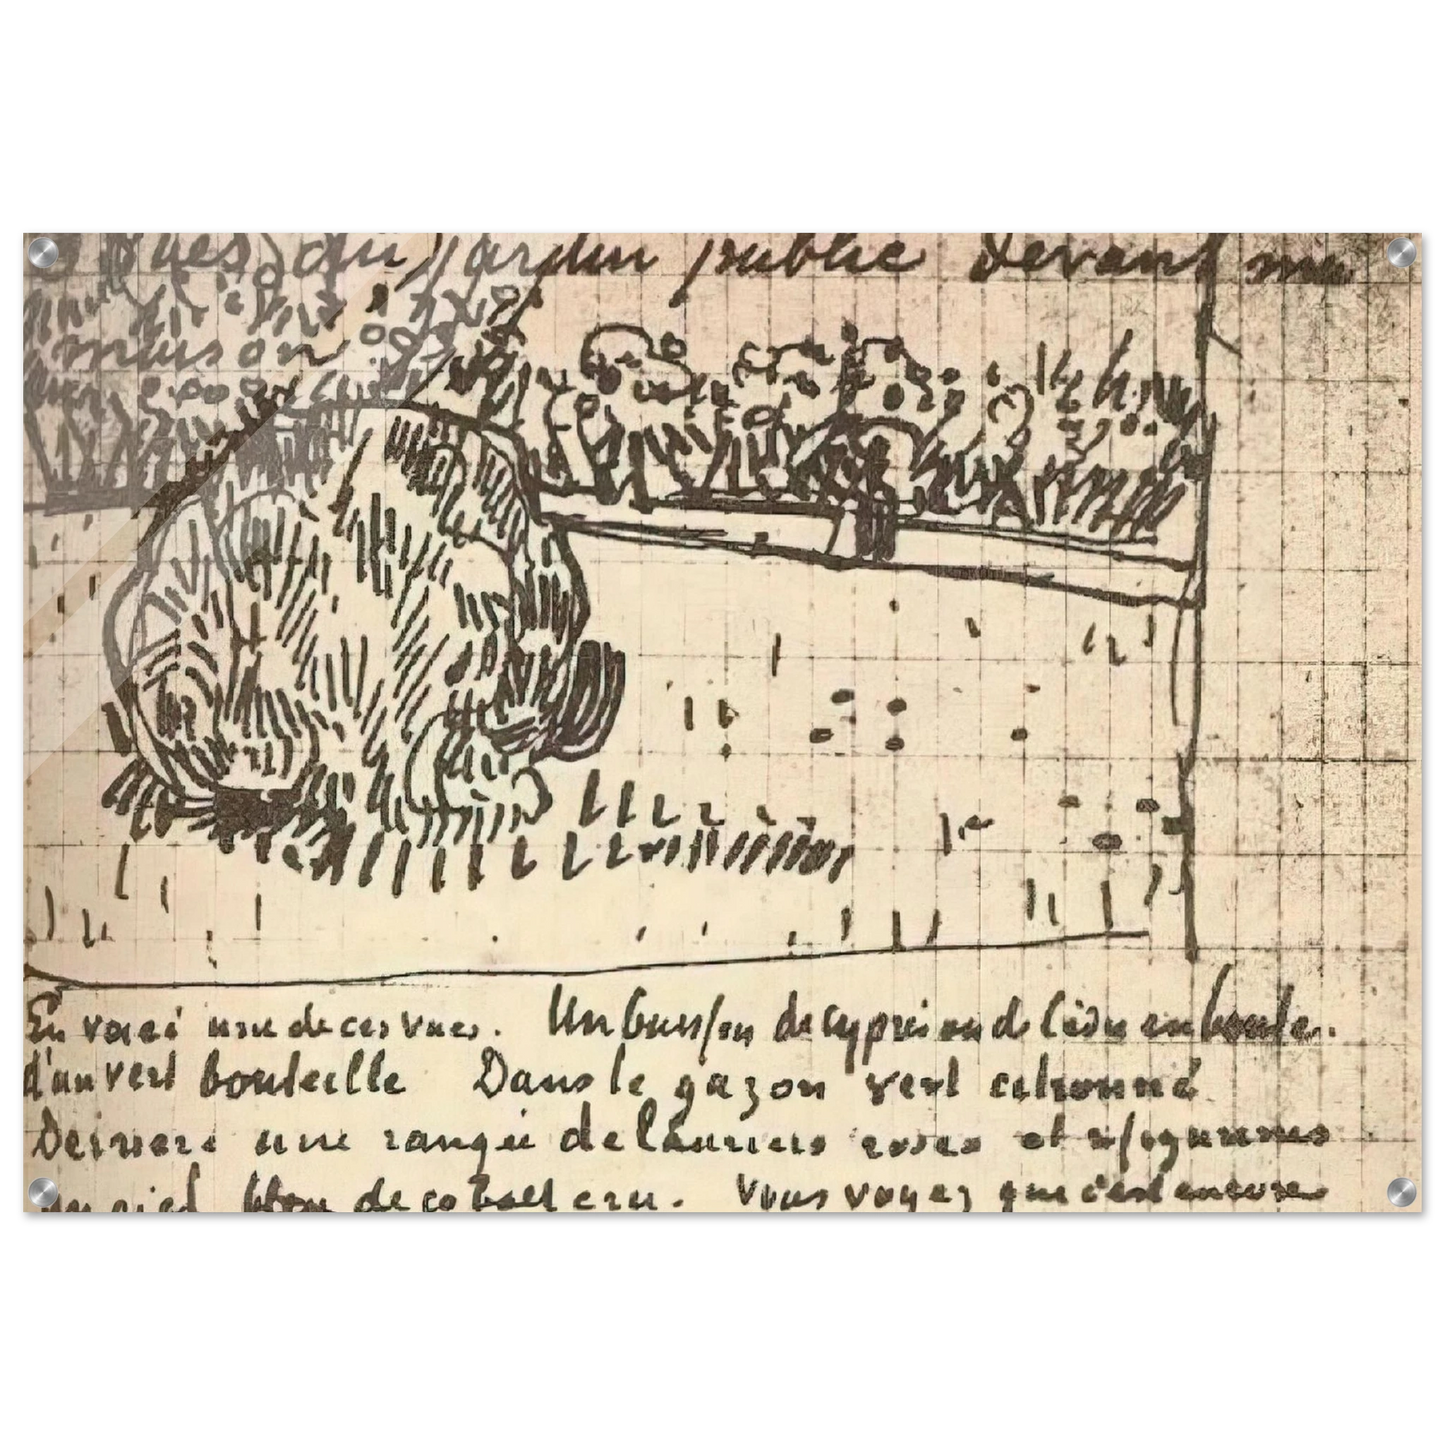 vues du jardin public devant ma
maison
En voici une de ces vues. Un buisson de cyprès ou de cèdre en boule.
d'un vert bouteille Dans le gazon vert citronné
Derriere une rangée de lauriers roses et
un ciel bleu de cobalt cru. Vous voyez que c'est encore